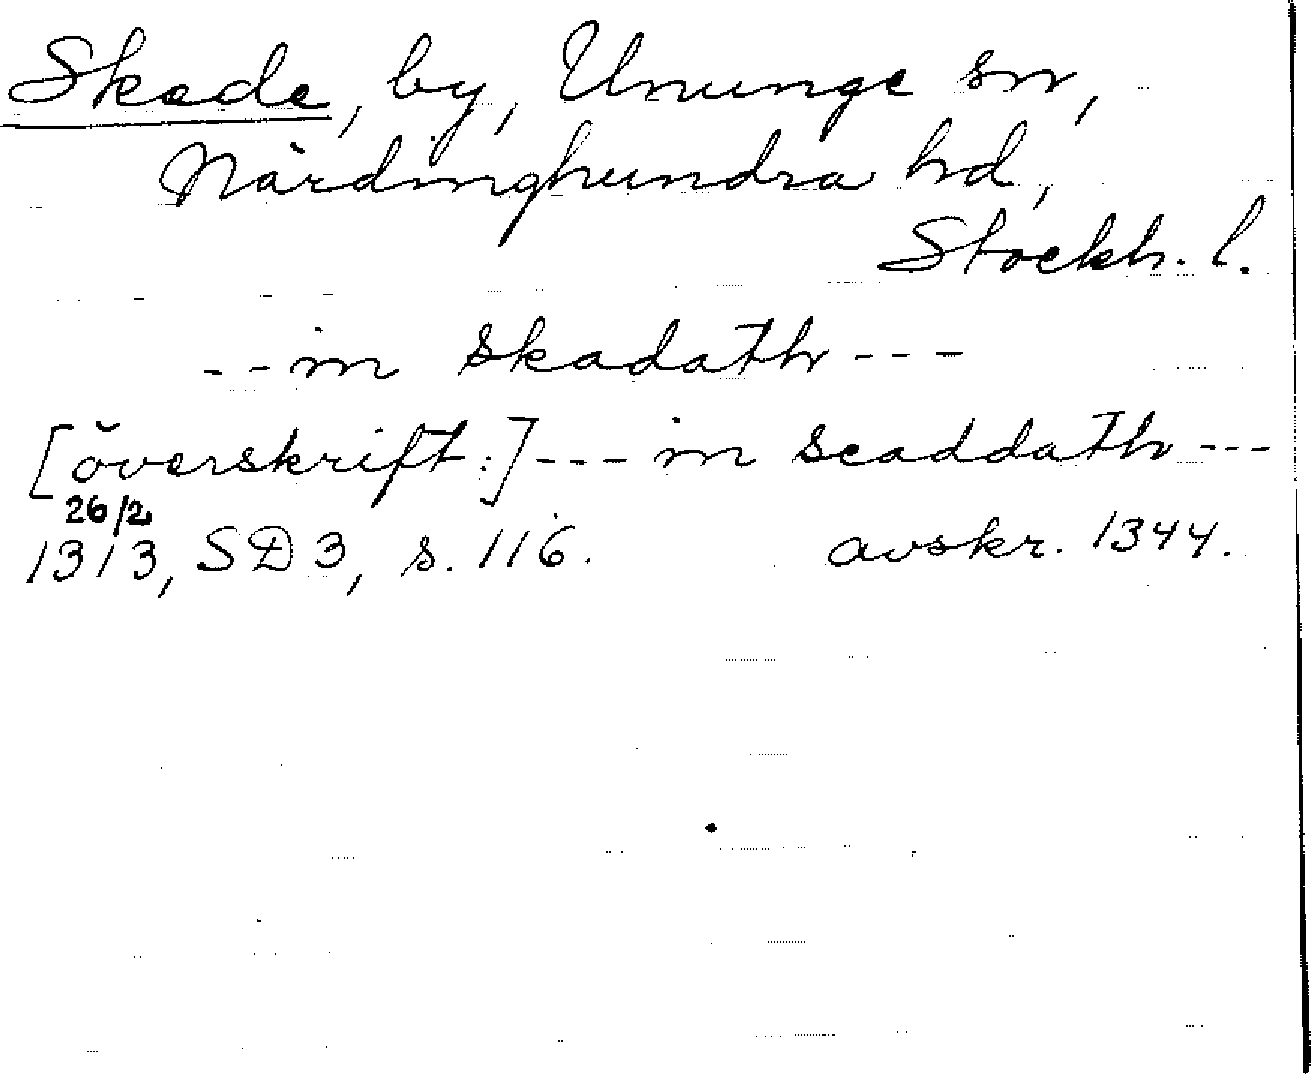 Skede, by, Ununge sn,
Närdinghundra hd,
Stockh. l.
-- in skadath ---
[överskrift:] --- in scaddath ---
26/2
1313, SD 3, s. 116. avskr. 1344.